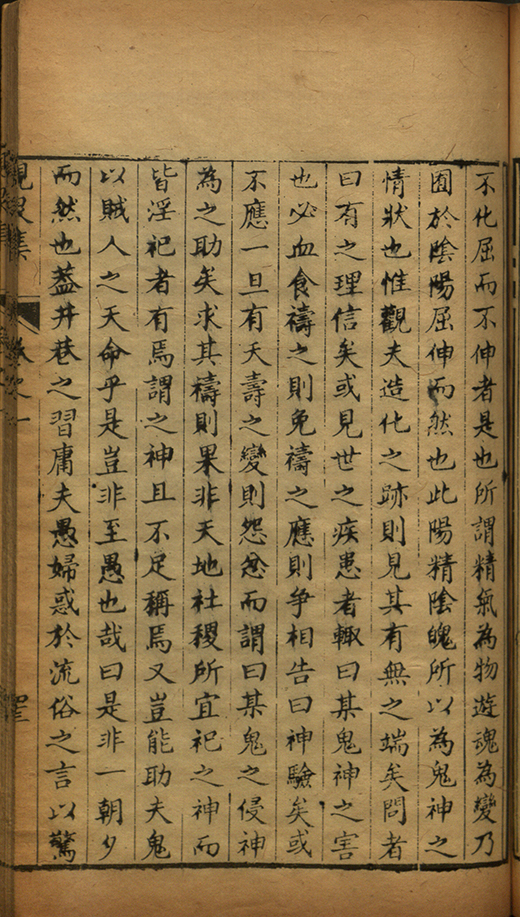 不化屈而不伸者是也所謂精氣為物遊魂為變乃
囿於陰陽屈伸而然也此陽精陰魄所以為鬼神之
情狀也惟觀夫造化之跡則見其有無之端矣問者
曰有之理信矣或見世之疾患者輙曰某鬼神之害
也必血食禱之則免禱之應則爭相告曰神驗矣或
不應一旦有夭壽之變則怨忿而謂曰某鬼之侵神
為之助矣求其禱則果非天地社稷所宜祀之神而
皆淫祀者有焉謂之神且不足稱焉又豈能助夫鬼
以賊人之天命乎是豈非至愚也哉曰是非一朝夕
而然也葢井巷之習庸夫愚婦惑於流俗之言以驚